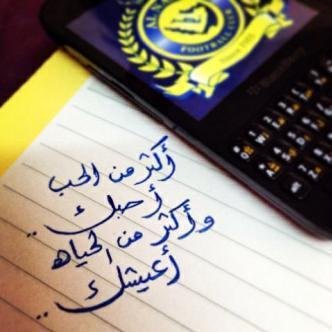 AL NA
FOOTBALL CLUB
BlackBerry
أكثر من الحب
أحبك ..
وأكثر من الحياه
أعيشك ..